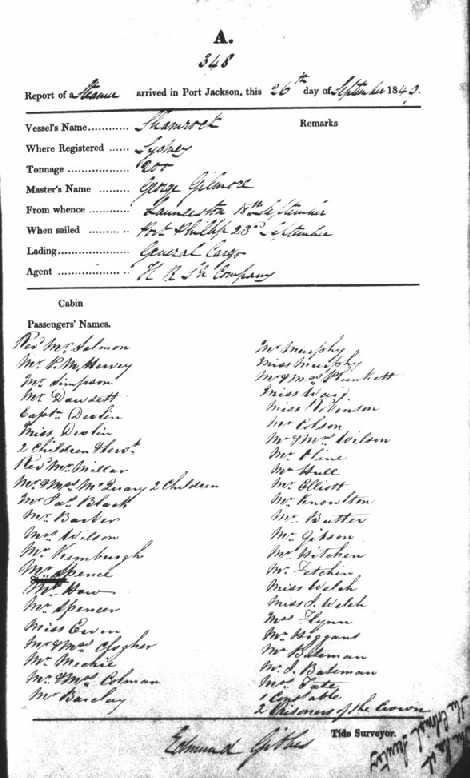 A.
348
Report of a Steamer arrived in Port Jackson, this 26th day of September 1843.
Vessel's Name............ Shamrock Remarks
Where Registered ...... Sydney
Tonnage .................. 200
Master's Name ......... George Gilmore
From whence ............ Launceston 18th September
When sailed ............ Port Phillip 23rd September
Lading..................... General Cargo
Agent ..................... H R S N Company
Cabin
Passengers' Names.
Revd Mr Salmon
Mr P. M. Hervey
Mr Simpson
Mr Dowsett
Captn Devlin
Miss Devlin
2 Children & Servt
Revd Mr Millar
Mr & Mrs McQuary 2 Children
Mr Jas Black
Mr Barber
Mrs Wilson
Mr Kemburgh
Mr Spence
Mr How
Mr Spencer
Miss Ewin
Mr & Mrs Clogher
Mr Mickie
Mr & Mrs Colman
Mr Barclay
Mr Murphy
Miss Murphy
Mr & Mrs Plunkett
Miss
Miss Robinson
Mr Polson
Mr & Mrs Wilson
Mr Cline
Mr Hull
Mr Elliott
Mr Knowlton
Mr Butter
Mr Gibson
Mr Hitchen
Mr Getchin
Miss Welch
Miss J. Welch
Mrs Flynn
Mr Higgans
Mr Bateman
Mr J. Bateman
Mrs Tate
1 Constable
2 Prisoners of the Crown
Tide Surveyor.
Edmund Gibbes